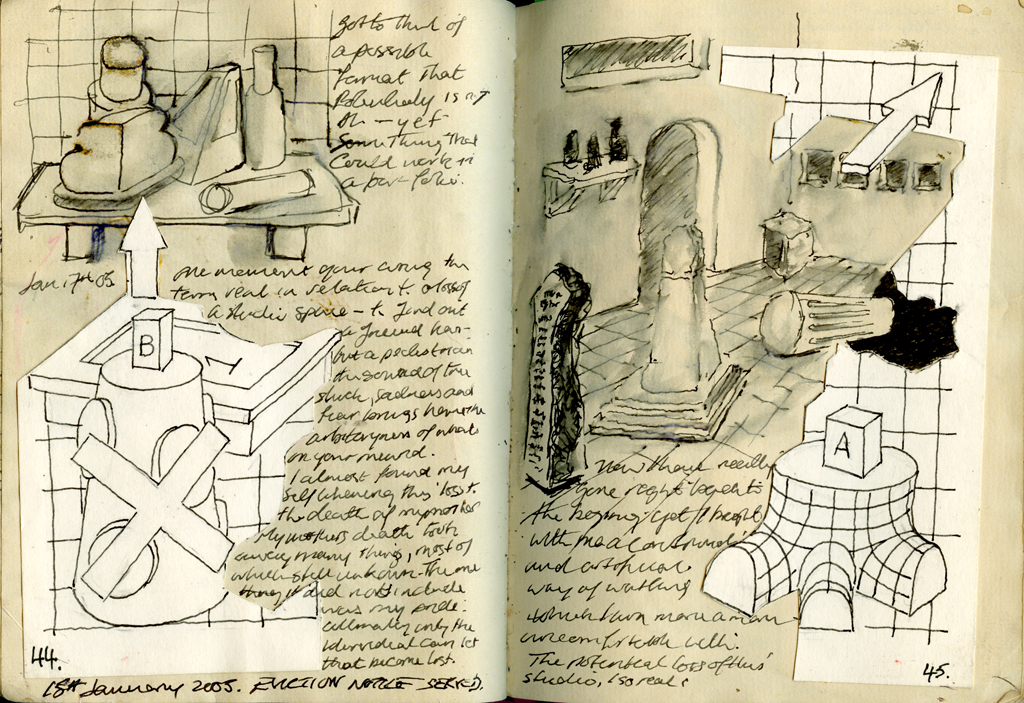 Got to think of
a possible
format that
Potentially is not
oh - yet
Something that
Could work in
a portfolio.
Jan 17th 05
one moment your using the
term real in relation to a loss of
a studio space - to find out
a friend has
but a pedestrian
the sound of the
sadness and
fear brings home the
of what
on your mind.
I almost found my
self this loss to
the death of my mother
My mothers death took
away many things, most of
which still unknown. The one
thing it did not include
was my pride.
ultimately only the
individual can let
that become lost.
44.
18th January 2005. EVICTION NOTICE SERVED.
B
now I have really
gone right back to
the begining yet I brought
with me a
and
way of working
which I am more
uncomfortable with.
The potential loss of this
studio, is so real
A
45.